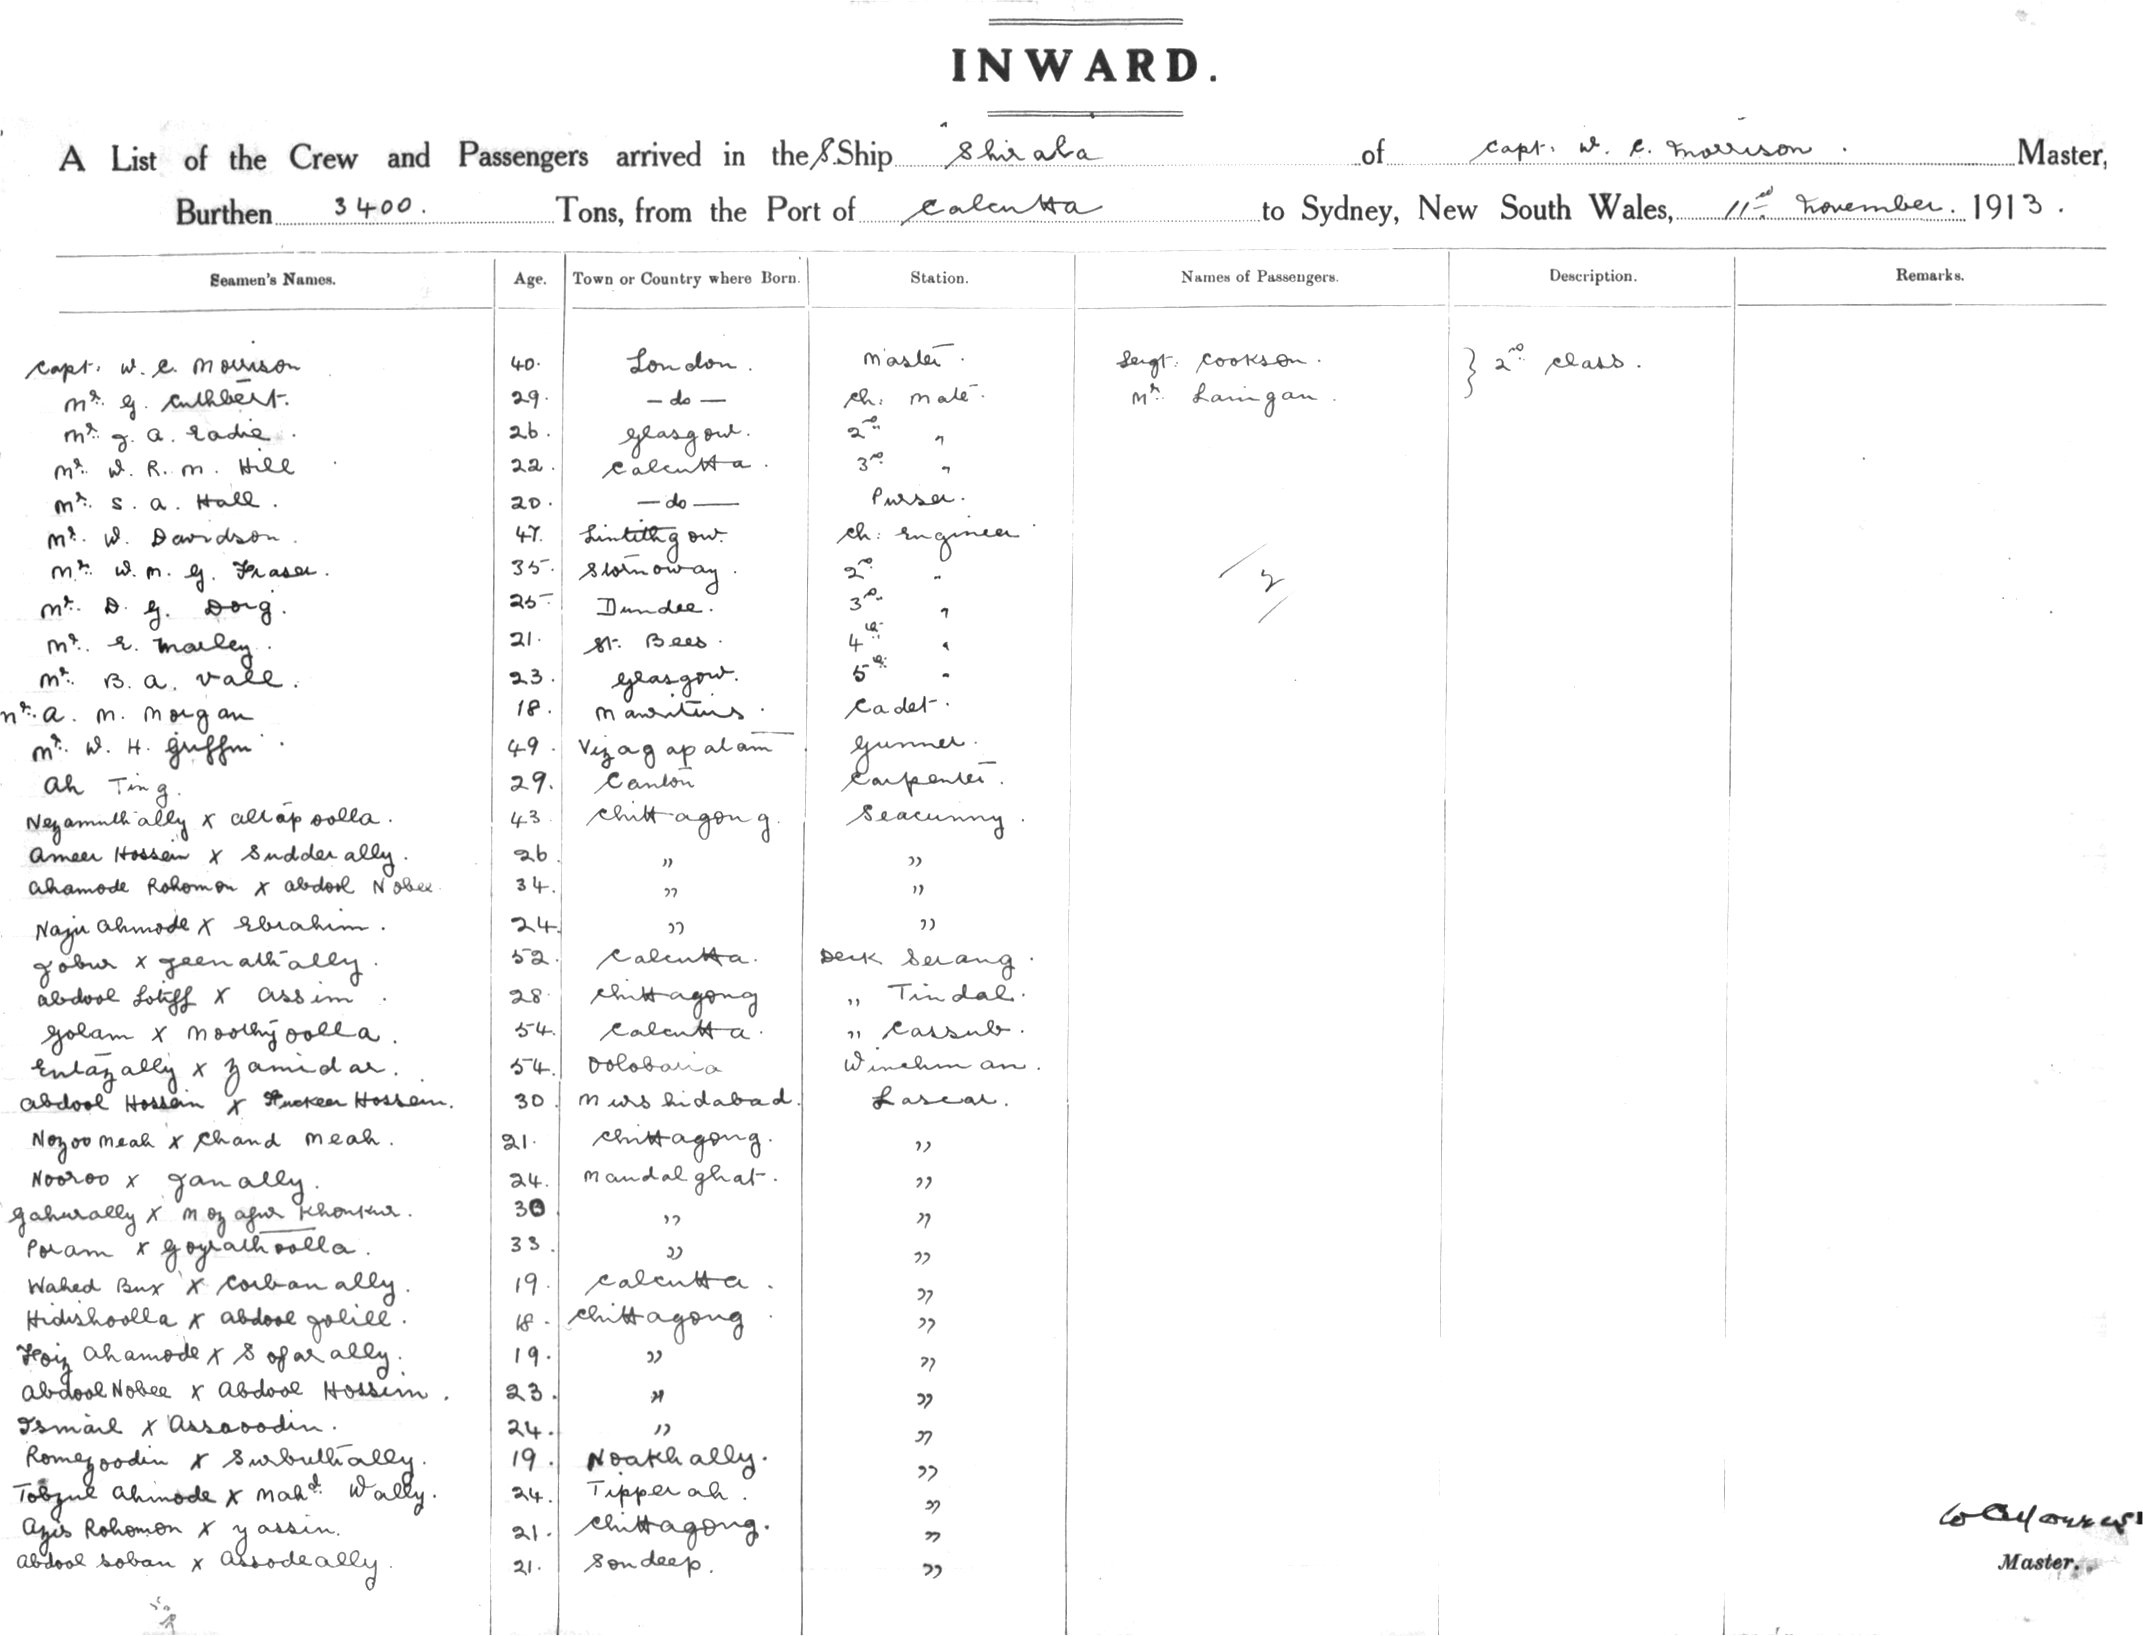 INWARD.
A List of the Crew and Passengers arrived in the S.Ship Shirala of Capt. W. C. Morrison Master,
Burthen 3400. Tons, from the Port of Calcutta to Sydney, New South Wales, 11th November. 1913.
Seamen's Names. Age. Town or Country where Born. Station. Names of Passengers. Description. Remarks.
Capt. W. C. Morrison 40. London. Master. Sergt. Cookson. } 2nd Class.
Mr. G. Cuthbert. 29. —do— Ch. Mate. Mr. Lanigan.
Mr. J. A. Eadie. 26. Glasgow. 2nd "
Mr. W. R. M. Hill 22. Calcutta. 3rd "
Mr. S. A. Hall. 20. —do— Purser.
Mr. W. Davidson. 47. Linlithgow. Ch. Engineer
Mr. W. M. G. Fraser. 35. Stornoway. 2nd "
Mr. D. G. Doig. 25 Dundee. 3rd "
Mr. E. Marley. 21. St. Bees. 4th "
Mr. B. A. Vall. 23. Glasgow. 5th "
Mr. A. M. Morgan 18. Mauritius. Cadet.
Mr. W. H. Griffin. 49. Vizagapatam Gunner.
Ah Ting. 29. Canton Carpenter.
Nezamuthally x Altapoolla. 43 Chittagong. Seacunny.
Ameer Hossein x Sudderally. 26 " "
Ahamode Rohomon x Abdool Nobee 34. " "
Naju Ahmode x Ebrahim. 24. " "
Jobur x Jeenathally. 52. Calcutta. Deck Serang.
Abdool Lotiff x Assim. 28. Chittagong " Tindal.
Golam x Moothyoolla. 54. Calcutta. " Cassub.
Entazally x Zamidar. 54. Oolobaria Winchman.
Abdool Hossein x Fuckeer Hossein. 30 Murshidabad. Lascar.
Nozoo Meah x Chand Meah. 21. Chittagong. "
Nooroo x Janally. 24. Mandalghat. "
Gahurally x Mozafur Khonkur. 30 " "
Poram x Goyrathoolla. 33. " "
Wahed Bux x Corbanally. 19. Calcutta. "
Hidishoolla x Abdool Jolill. 18. Chittagong. "
Foiz Ahamode x Sofarally. 19. " "
Abdool Nobee x Abdool Hossein. 23. " "
Ismail x Assaoodin. 24. " "
Romezoodin x Surbuthally. 19. Noakhally. "
Tobzul Ahmode x Mahd. Wally. 24. Tipperah. "
Azis Rohomon x Yassin. 21. Chittagong. "
Abdool Soban x Assodeally. 21. Sondeep. "
Master.